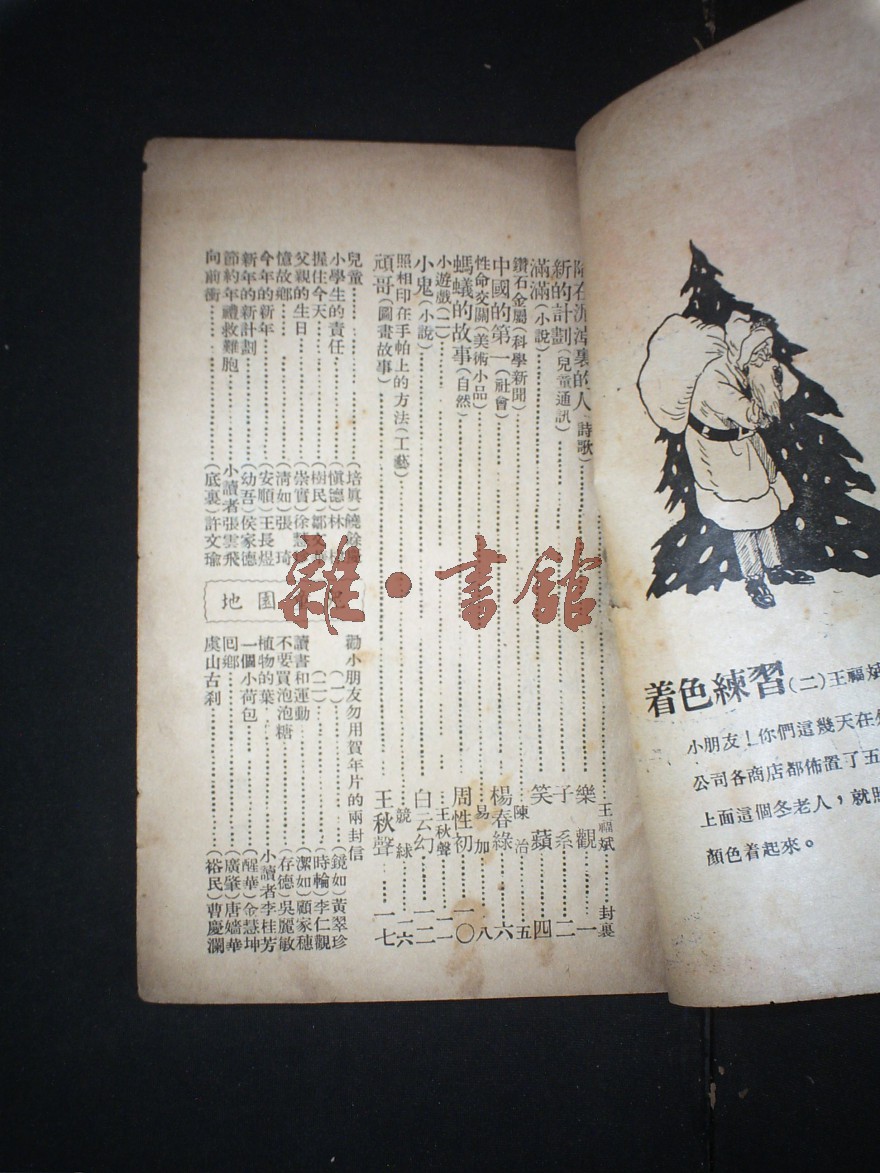 着色練習(二)王福斌
小朋友!你們這幾天在
公司各商店都佈置了五
上面這個冬老人,就照
顏色着起來。
王福斌 封裏
陷在泥淖裏的人(詩歌) 樂觀 一
新的計劃(兒童通訊) 子系 二
滿滿(小說) 笑蘋 四
鑽石金屬(科學新聞) 陳治 五
中國的第一(社會) 楊春綠 六
性命交關(美術小品) 易加 八
螞蟻的故事(自然) 周性初 一〇
小遊戲(二) 王秋聲 一一
小鬼(小說) 白云幻 一二
照相印在手帕上的方法(工藝) 競球 一六
頑哥(圖畫故事) 王秋聲 一七
兒童
地園
兒童 (培眞)饒
小學生的責任 (愼德)林
握住今天 (樹民)鄒
父親的生日 (崇實)徐
憶故鄉 (淸如)張琦
今年的新年 (安順)王長煜
新年的新計劃 (幼吾)侯家德
節約年禮救難胞 小讀者張雲飛
向前衝 (底裏)許文瑜
勸小朋友勿用賀年片的兩封信
(一) (鏡如)黃翠珍
(二) (時輪)李仁觀
讀書和運動 (潔如)顧家穗
不要買泡泡糖 (存德)吳麗敏
植物的葉 小讀者李桂芳
一個小荷包 (醒華)金慧坤
囘鄉 (廣肇)唐嬙華
虞山古刹 (裕民)曹慶瀾
雜·書館